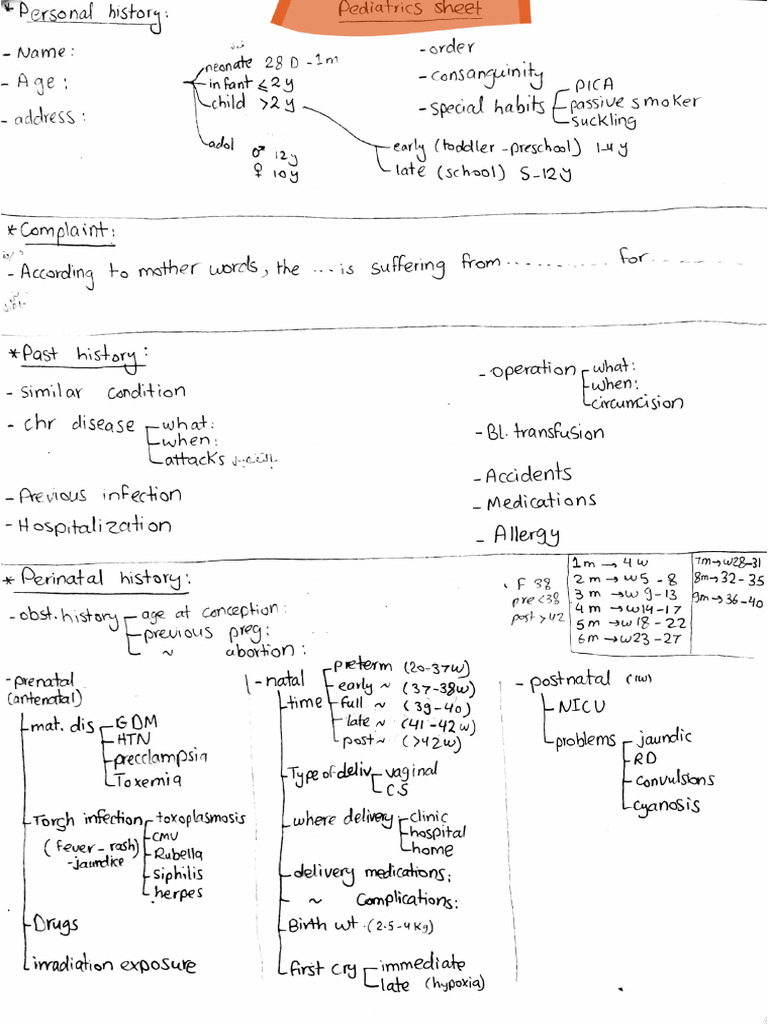 Pediatrics sheet
* Personal history:
- Name:
- Age:
neonate 28 D - 1m
infant ≤ 2 y
child > 2 y
adol ♂ 12y
♀ 10y
early (toddler - preschool) 1-4 y
late (school) 5-12 y
- address:
- order
- consanguinity
- special habits
PICA
passive smoker
suckling
* Complaint:
- According to mother words, the ... is suffering from ........... for ........
* Past history:
- similar condition
- chr disease
what:
when:
attacks
- Previous infection
- Hospitalization
- operation
what:
when:
circumcision
- Bl. transfusion
- Accidents
- Medications
- Allergy
* Perinatal history:
F 38
pre < 38
post > 42
1m → 4 w
2 m → w5 - 8
3 m → w 9-13
4 m → w14-17
5m → w18-22
6m → w23-27
7m → w28-31
8m → 32-35
9m → 36-40
- obst. history
age at conception:
previous preg:
~ abortion:
- prenatal
(antenatal)
mat. dis
GDM
HTN
preeclampsia
Toxemia
Torch infection
(fever - rash)
- jaundice
toxoplasmosis
CMV
Rubella
siphilis
herpes
Drugs
irradiation exposure
- natal
time
preterm (20-37w)
early ~ (37-38w)
full ~ (39-40)
late ~ (41-42 w)
post ~ (>42w)
Type of deliv
vaginal
CS
where delivery
clinic
hospital
home
delivery medications:
~ Complications:
Birth wt. (2.5-4 Kg)
first cry
immediate
late (hypoxia)
- postnatal (1w)
NICU
problems
jaundic
RD
convulsions
cyanosis